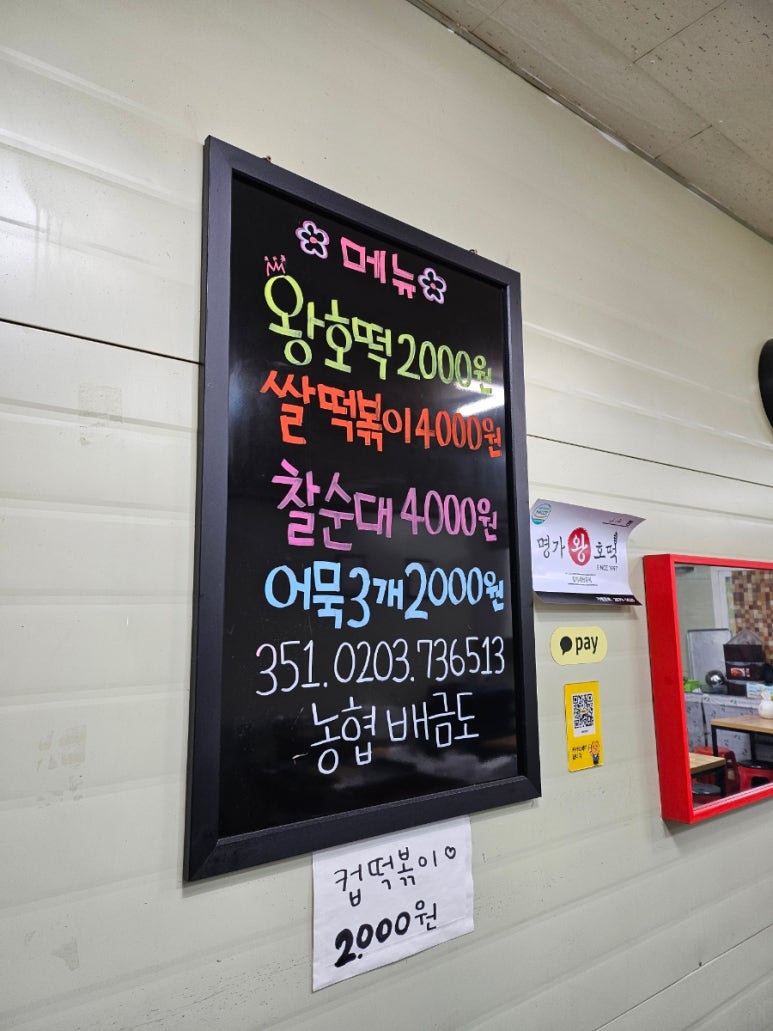 메뉴
왕호떡 2000원
쌀떡볶이 4000원
찰순대 4000원
어묵3개 2000원
351.0203.736513
농협 배금도
컵떡볶이
2.000원
명가 왕 호떡
SINCE 1997
pay